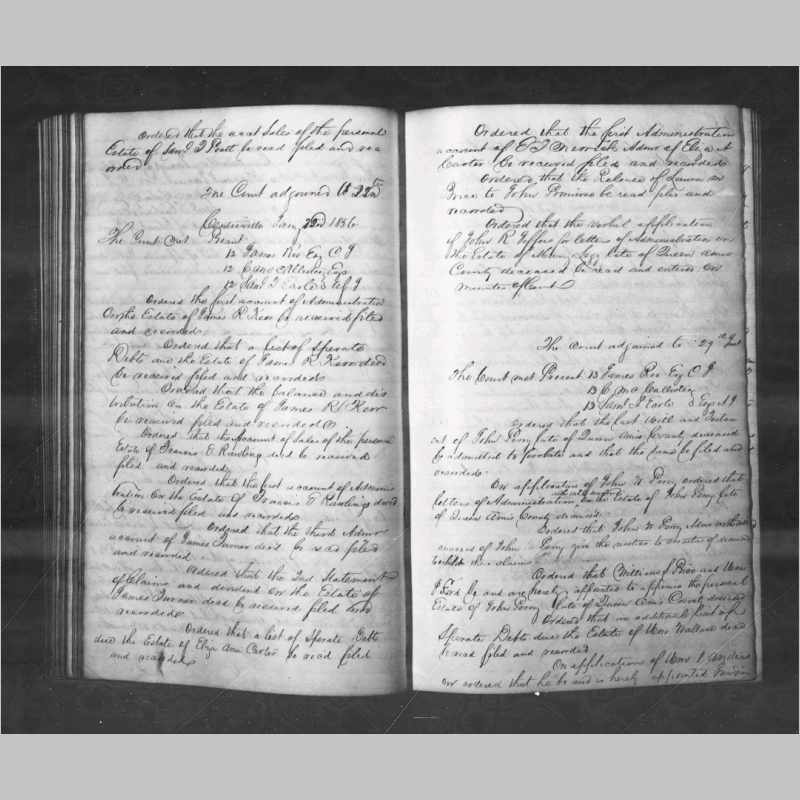 Ordered that the acct Sales of the personal
Estate of Saml T Pratt be read filed and rec
orded
The Court adjourned to 22nd
Centreville Jany 22nd 1856
The Court met Present
12 James Roe Esq C J
12 C McCallister Esq
12 Saml T Earle A J
Ordered the first account of Administration
On the Estate of James R Kerr be received filed
and recorded
Ordered that a list of Sperate
Debts due the Estate of James R Kerr decd
be received filed and recorded
Ordered that the balance and dis
tribution On the Estate of James R Kerr
be received filed and recorded
Ordered that the Account of Sales of the personal
Estate of Francis E Rawlings decd be received
filed and recorded
Ordered that the first account of Adminis
tration On the Estate of Francis E Rawlings decd
be received filed and recorded
Ordered that the third Admr
account of James Turner decd be read filed
and recorded
Ordered that the 2nd Statement
of Claims and dividend on the Estate of
James Turner decd be received filed and
recorded
Ordered that a list of Sperate Debts
due the Estate of Eliza Ann Carter be read filed
and recorded
Ordered that the first Administration
account of Admr of Eliza A
Carter be received filed and recorded
Ordered that the Release of
to John be read filed and
recorded
Ordered that the verbal application
of John R for letters of Administration on
the Estate of late of Queen Anns
County deceased be read and entered on
minutes of Court
The Court adjourned to 29th Inst
The Court met Present 13 James Roe Esq C J
13 C McCallister
13 Saml T Earle Esqrs A J
Ordered that the last Will and Testam
ent of John Perry late of Queen Anns County deceased
be admitted to probate and that the same be filed and
recorded
On application of John W Perry ordered that
letters of Administration with will annexed on the Estate of John Perry late
of Queen Anns County deceased
Ordered that John W Perry Admr with will
annexed of John Perry give the notice to creditors of deceased
to exhibit their claims
Ordered that William J Price and Wm
J Ford be and are hereby appointed to appraise the personal
Estate of John Perry late of Queen Anns County deceased
Ordered that an additional list of
Sperate Debts due the Estate of Wm Wallace decd
be read filed and recorded
On application of Wm
ordered that he be and is hereby appointed